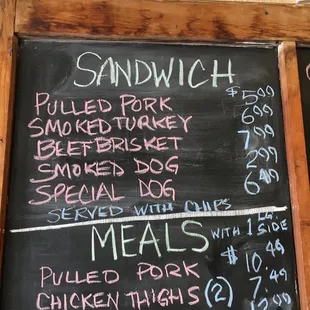 SANDWICH
PULLED PORK $5.99
SMOKED TURKEY 6.99
BEEF BRISKET 7.99
SMOKED DOG 2.99
SPECIAL DOG 6.49
SERVED WITH CHIPS
MEALS WITH 1 LG. SIDE
PULLED PORK $10.49
CHICKEN THIGHS (2) 7.49